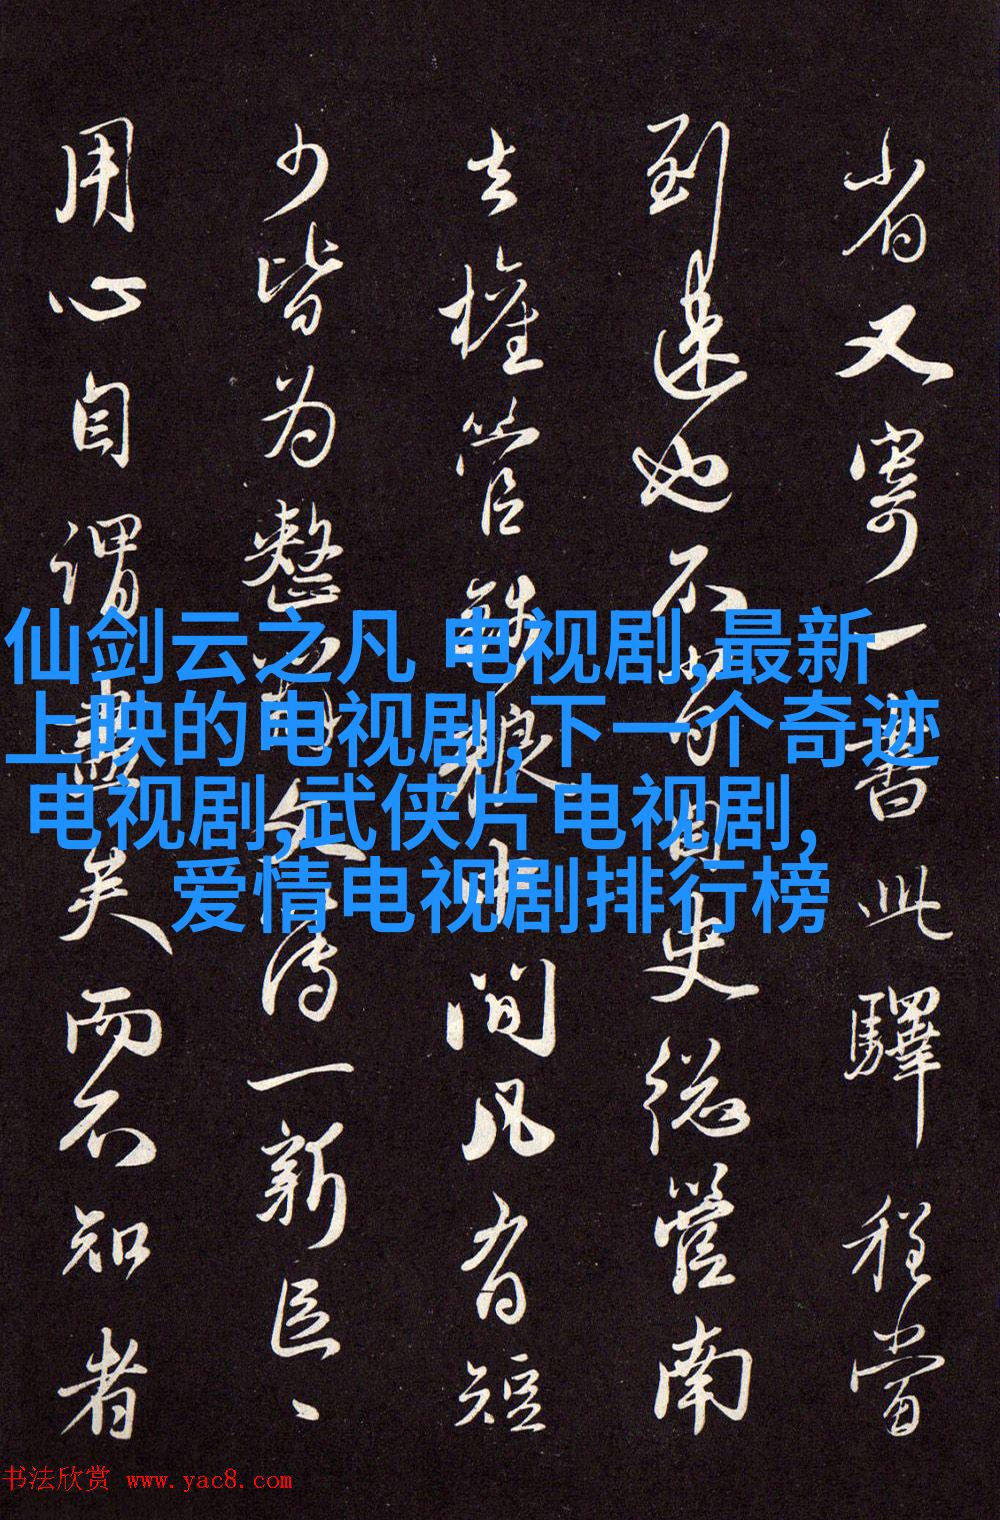 仙剑云之凡 电视剧,最新
上映的电视剧,下一个奇迹
电视剧,武侠片电视剧,
爱情电视剧排行榜
省又寄一書此驛程當
到速也不自史總管南
去權管錢糧中間凡有短
少皆为整文一新
用心自謂盡矣而不知者
书法欣赏 www.yac8.com